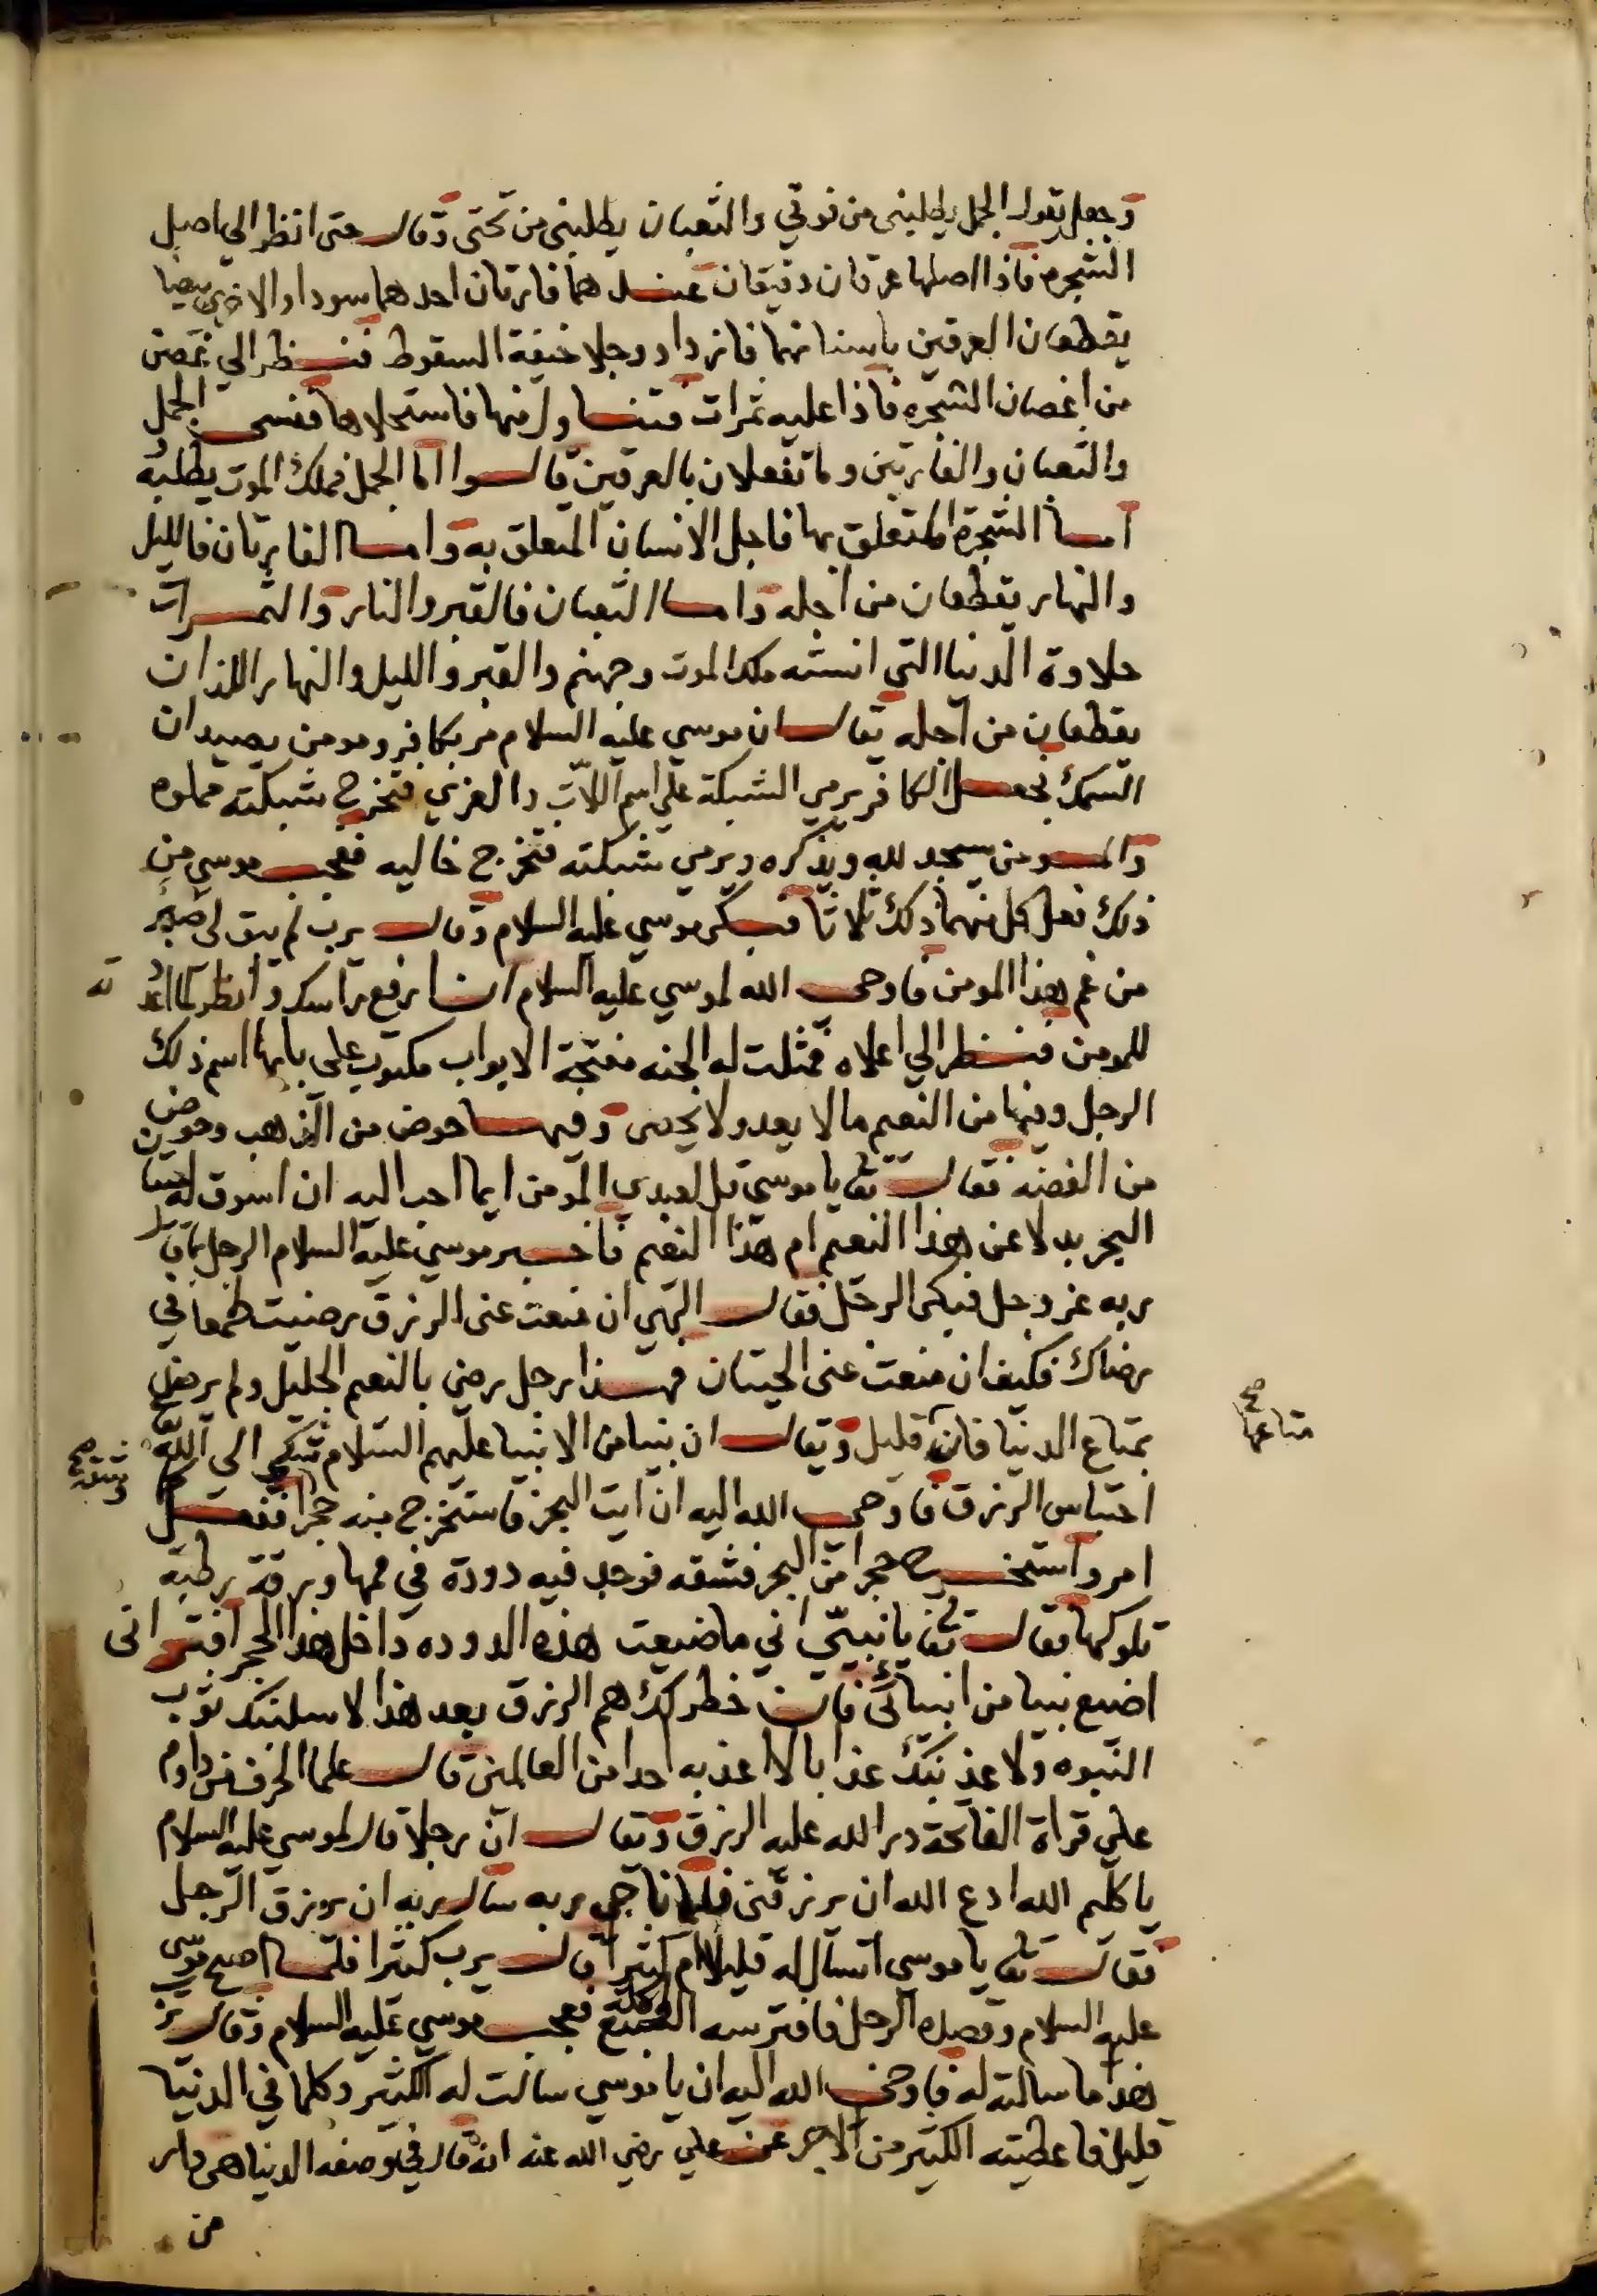 وجعل يقول الجمل يطلبني من فوقي والثعبان يطلبني من تحتي وقال حتى انظر الي اصل
الشجره فاذا اصلها عرقان دقيقان عندهما فارتان احدهما سودا والاخرى بيضا
يقطعان العرقين باسنانهما فازداد وجلا خيفة السقوط فنظر الي غصن
من اغصان الشجره فاذا عليه ثمرات فتناول منها فاستحلاها فنسي الجمل
والثعبان والفارتين وما تفعلان بالعرقين قالوا اما الجمل فملك الموت يطلبه
اما الشجرة المتعلق بها فاجل الانسان المتعلق به واما الفارتان فالليل
والنهار يقطعان من اجله واما الثعبان فالقبر والنار والثمرات
حلاوة الدنيا التي انسته ملك الموت وجهنم والقبر والليل والنهار اللذان
يقطعان من اجله يقال ان موسي عليه السلام مر بكافر ومومن يصيدان
السمك فجعل الكافر يرمي الشبكة علي اسم اللات والعزي فتخرج شبكته مملوه
والمومن يسجد لله ويذكره ويرمي شبكته فتخرج خاليه فعجب موسي من
ذلك فعل كل منهما ذلك ثلاثا فبكى موسي عليه السلام وقال يرب لم يبق لى صبر
من غم هذا المومن فاوحى الله لموسي عليه السلام ان ارفع راسك وانظر ما اعد ته
للمومن فنظر الي اعلاه فمثلت له الجنه مفتحة الابواب مكتوب على بابها اسم ذلك
الرجل وفيها من النعيم مالا يعد ولا يحصى وفيها حوض من الذهب وحوض
من الفضة فقال تع يا موسى قل لعبدي المومن ايما احب اليه ان اسوق له حيتان
البحر بدلا عن هذا النعيم ام هذا النعيم فاخبر موسي عليه السلام الرجل بما قال
ربه عز وجل فبكى الرجل فقال الهي ان منعت عنى الرزق رضيت طمعا في
رضاك فكيف ان منعت عنى الحيتان فهذا رجل رضي بالنعيم الجليل ولم يرض
بمتاع الدنيا فان قليل ويقال ان نبيا من الانبيا عليهم السلام شكى الى الله تع
متاعها صح
احتباس الرزق فاوحى الله اليه ان ايت البحر فاستخرج منه حجرا ففعل كما
امر واستخرج حجرا من البحر فشقه فوجد فيه دودة في فمها ورقة رطبة
تلوكها فقال تع يا نبيي اني ما ضيعت هذه الدوده داخل هذا الحجر افتراني
اضيع نبيا من انبيائى فان خطر لك هم الرزق بعد هذا لاسلبنك ثوب
النبوه ولاعذبنك عذابا لا اعذبه احدا من العالمين قال علما الحرف من داوم
على قراة الفاتحة در الله عليه الرزق ويقال ان رجلا قال لموسي عليه السلام
يا كليم الله ادع الله ان يرزقنى فلما ناجى ربه سال ربه ان يرزق الرجل
فقال تع يا موسى اتسال له قليلا ام كثيرا قال يرب كثيرا فلما اصبح موسى
عليه السلام وقصد الرجل فافترسه السبع فعجب موسي عليه السلام وقال يرب
هذا ما سالته له فاوحى الله اليه ان يا موسي سالت له الكثير وكلما في الدنيا
قليل فاعطيته الكثير من الاجر عن علي رضي الله عنه انه قال في وصفه الدنيا هى دار
من